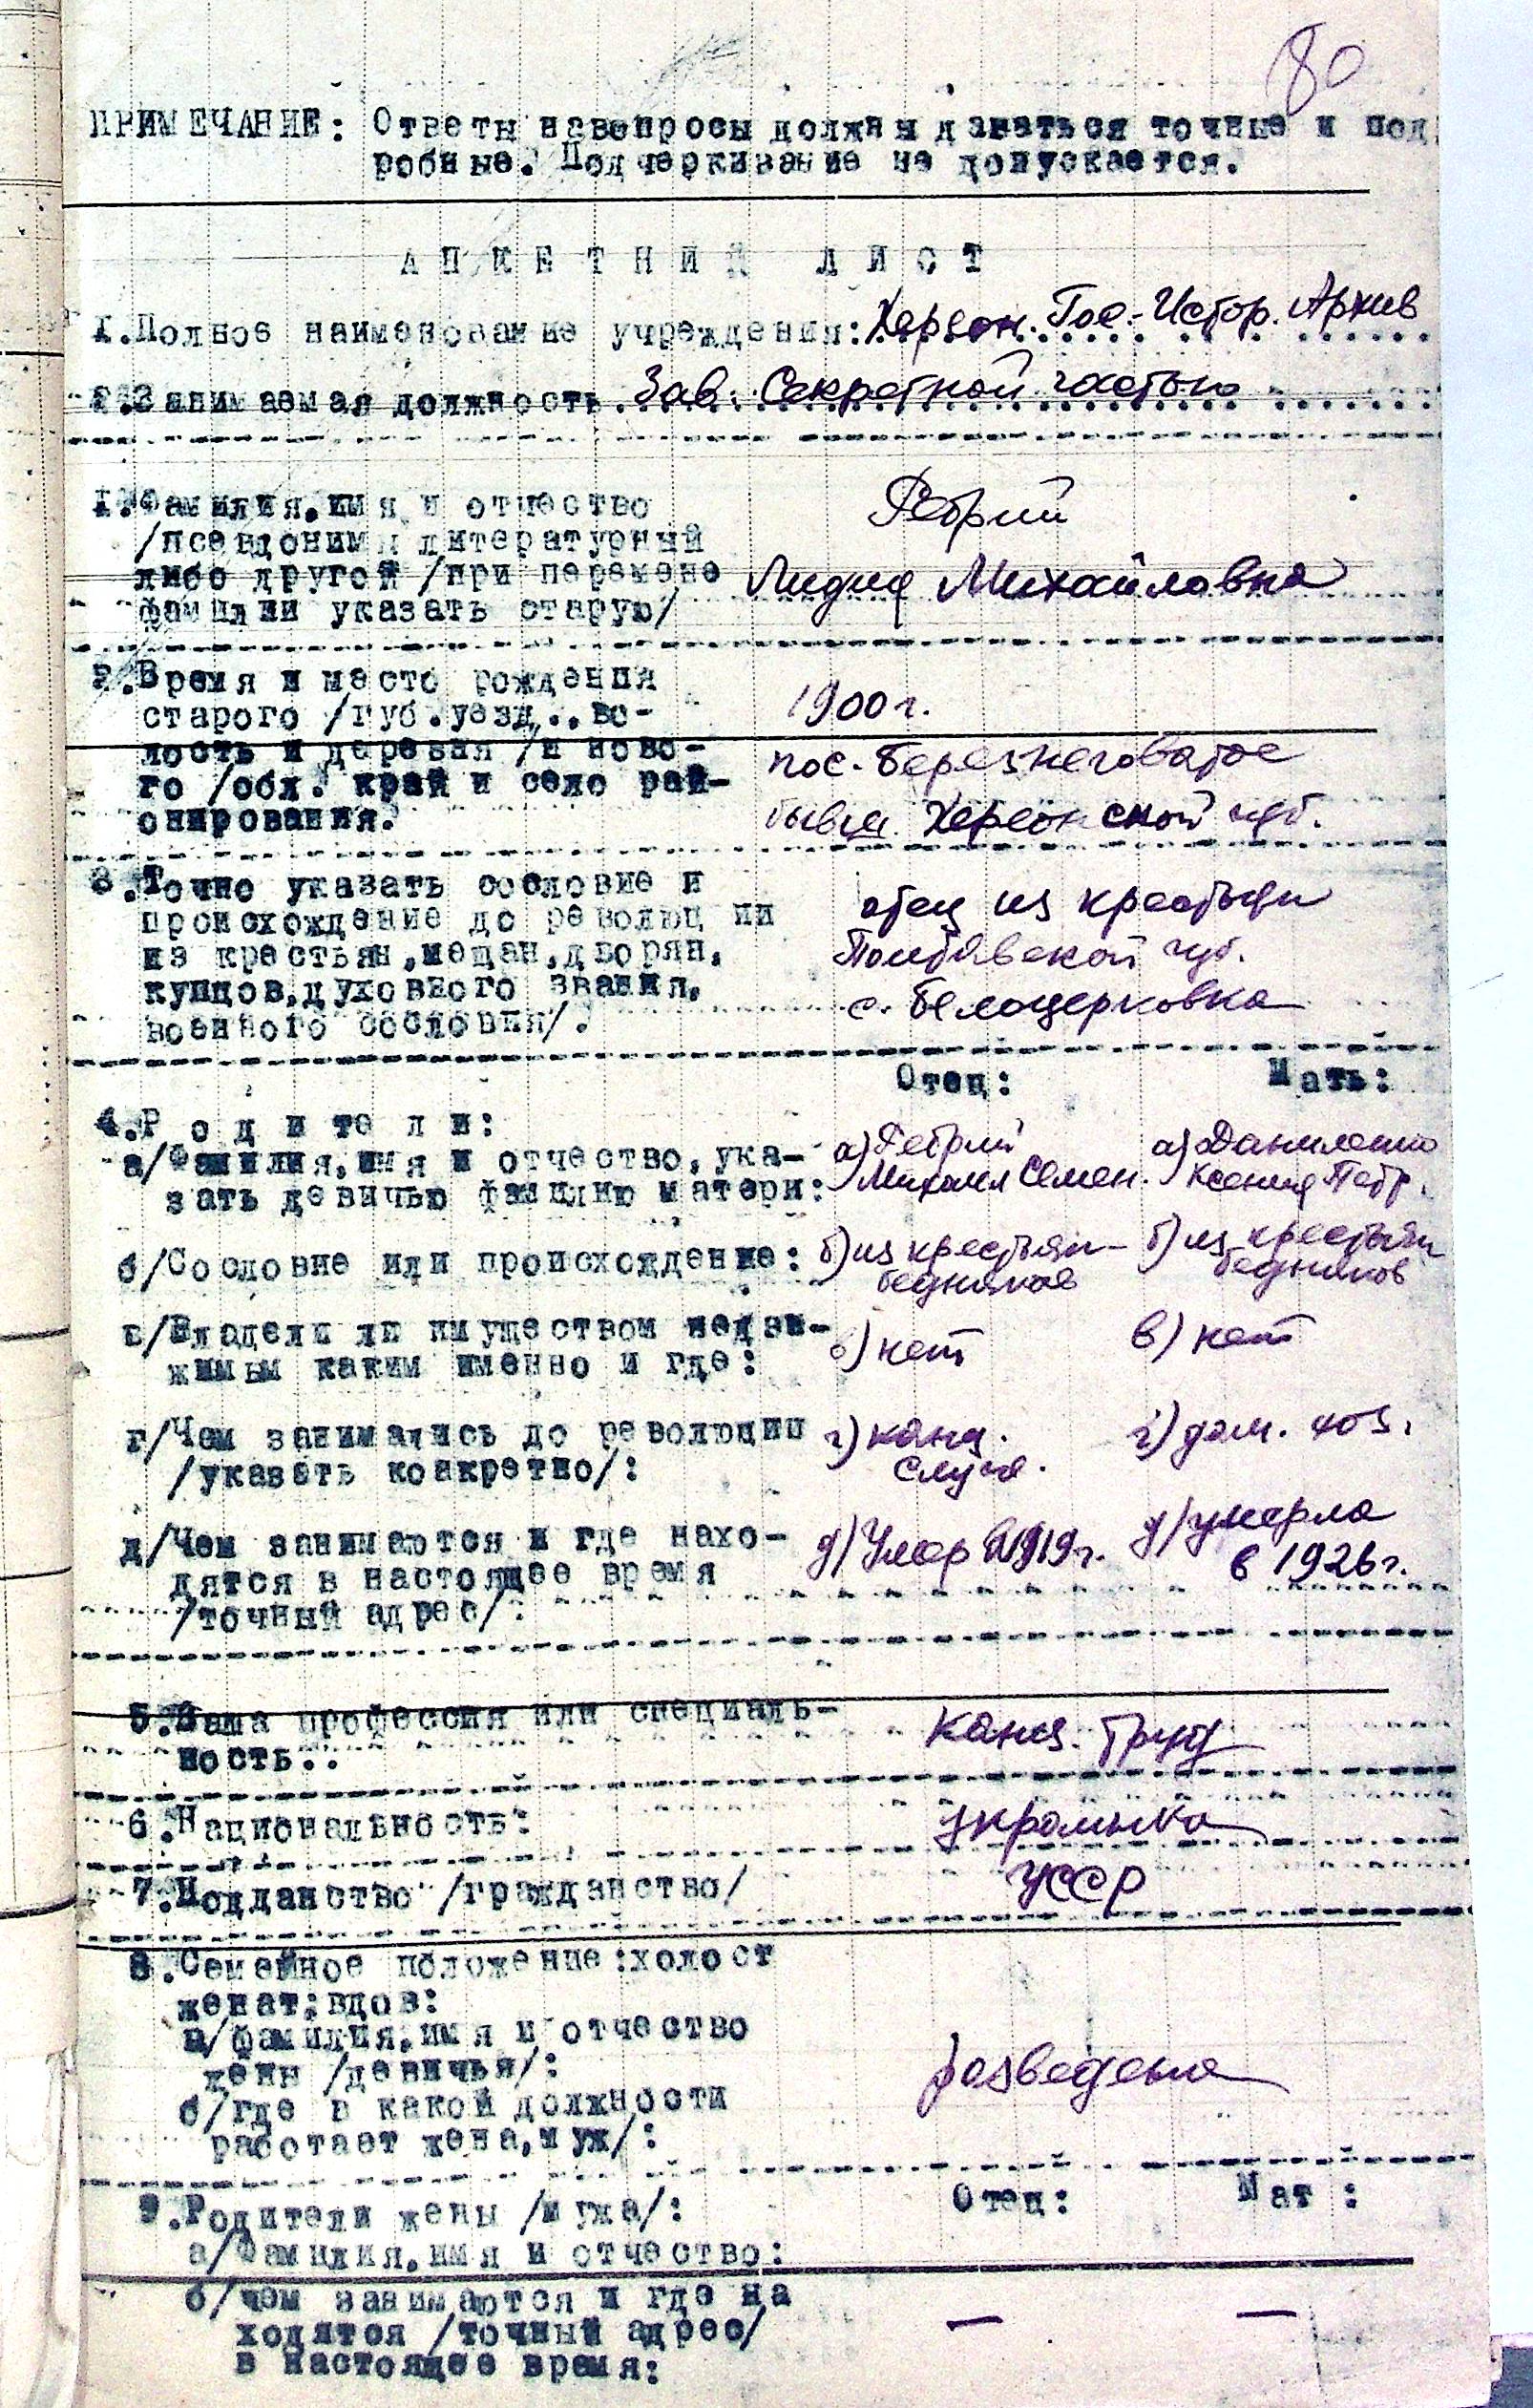 80
ПРИМЕЧАНИЕ: Ответы на вопросы должны даваться точные и под
робные. Подчеркивание не допускается.
АНКЕТНИЙ ЛИСТ
1.Полное наименование учреждения: Херсон. Гос.-Истор. Архив
2.Занимаемая должность. Зав. Секретной частью
1.Фамилия,имя и отчество
/псевдоним литературный
либо другой /при перемене
фамилии указать старую/
Ретрий
Лидия Михайловна
2.Время и место рождения
старого /губ.уезд..во-
лость и деревня /и ново-
го /обл. край и село рай-
онирования.
1900 г.
пос. Березнеговатое
бывш. Херсонской губ.
3.Точно указать сословие и
происхождение до революции
из крестьян,мещан,дворян,
купцов,духовного звания,
военного сословия/.
отец из крестьян
Полтавской губ.
с. Белоцерковка
Отец: Мать:
4.Родители:
а/Фамилия,имя и отчество,ука-
зать девичью фамилию матери:
а) Ретрий
Михаил Семен.
а) Даниленко
Ксения Петр.
б/Сословие или происхождение:
б) из крестьян-
бедняков
б) из крестьян
бедняков
в/Владели ли имуществом недви-
жимым каким именно и где:
в) нет
в) нет
г/Чем занимались до революции
/указать конкретно/:
г) канц.
служ.
г) дом. хоз.
д/Чем занимаются и где нахо-
дятся в настоящее время
/точный адрес/.
д) Умер в 1919г.
д) умерла
в 1926г.
5.Ваша профессия или специаль-
ность..
канц. труд
6.Национальность:
украинка
7.Подданство /гражданство/
УССР
8.Семейное положение:холост
женат:вдов:
а/фамилия,имя и отчество
жены /девичья/:
б/где в какой должности
работает жена,муж/:
разведена
9.Родители жены /мужа/:
Отец: Мат :
а/Фамилия,имя и отчество:
б/чем занимаются и где на
ходятся /точный адрес/
в настоящее время:
— —